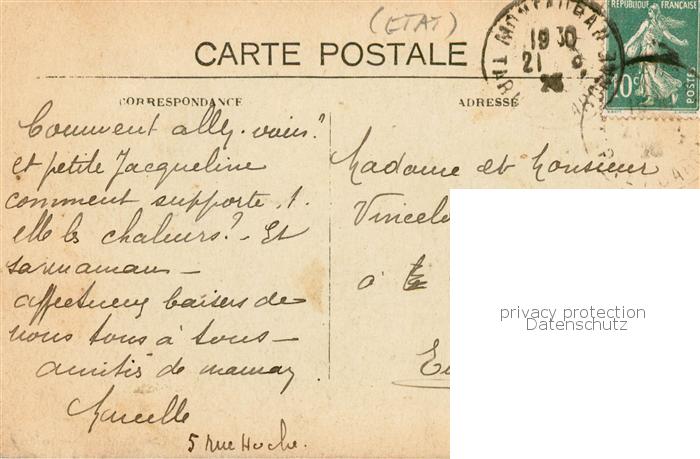 (ETAT)
CARTE POSTALE
MONTAUBAN
19 30
21
RÉPUBLIQUE FRANÇAISE
10c
POSTES
CORRESPONDANCE
ADRESSE
Comment allez-vous?
et petite Jacqueline
comment supporte-t-
elle les chaleurs? - Et
sa maman -
affectueux baisers de
nous tous à tous -
amitiés de maman
5 rue Hoche.
Madame et Monsieur
à
privacy protection
Datenschutz